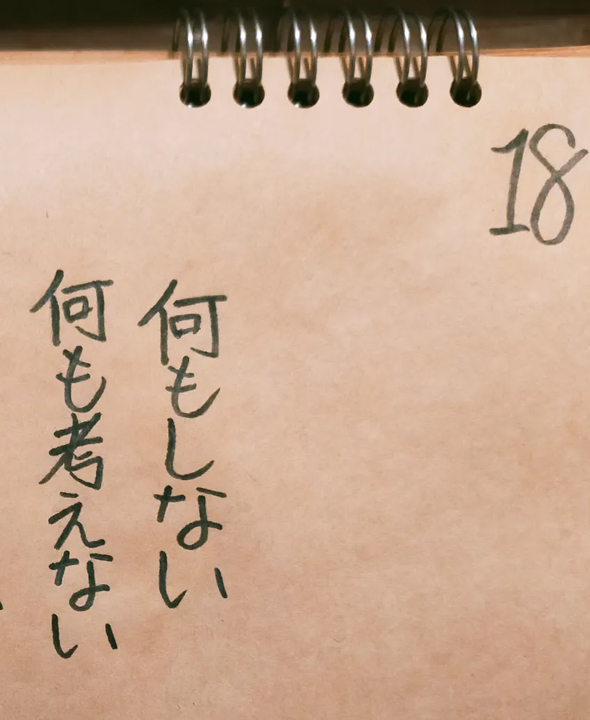 18
何もしない
何も考えない